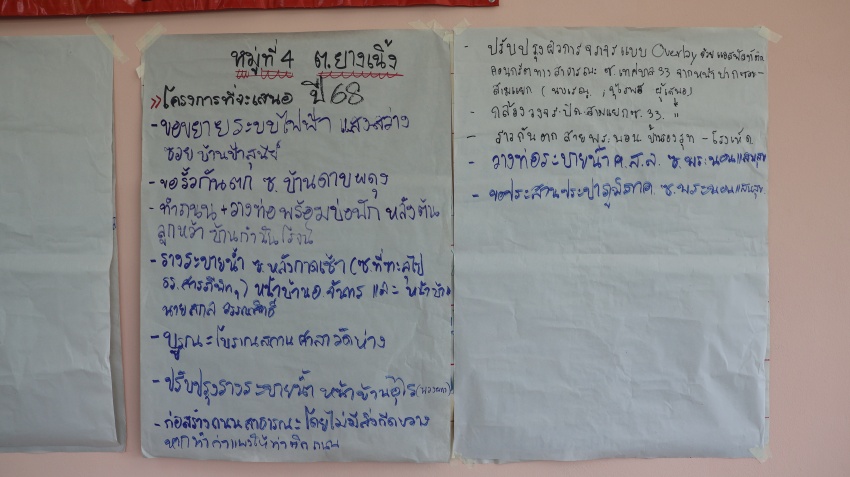 หมู่ที่ 4 ต.ยางเนิ้ง
» โครงการที่จะเสนอ ปี 68
- ขอขยายระบบไฟฟ้า แสงสว่าง
ซอย บ้านป้าสุนีย์
- ขอรั้วกันตก ซ. บ้านดาบผดุง
- ทำถนน + วางท่อพร้อมบ่อพัก หลังต้น
ลูกหว้า บ้านกำนัน
- รางระบายน้ำ ซ. หลังกาดเช้า (ซ.ที่ทะลุไป
รร.สารภีพิท.) หน้าบ้าน อ.จันทร และ หน้าบ้าน
นาย
- บูรณะโบราณสถาน ศาลาวัดห่าง
- ปรับปรุงรางระบายน้ำ หน้าบ้าน
- ก่อสร้างถนนสาธารณะ โดยไม่มีสิ่งกีดขวาง
ติดถนน
- ปรับปรุงผิวการจราจรแบบ Overlay ด้วยแอสฟัลท์ติก
คอนกรีตทางสาธารณะ ซ.เทศบาล 33 จากหน้าปากซอย -
สามแยก ( ผู้เสนอ)
- กล้องวงจรปิด สามแยก ซ. 33. "
- ราวกันตก สายพระนอน
- วางท่อระบายน้ำ ค.ส.ล. ซ.พระนอนแสนสุข
- ขอประสานประปาภูมิภาค ซ.พระนอนแสนสุข